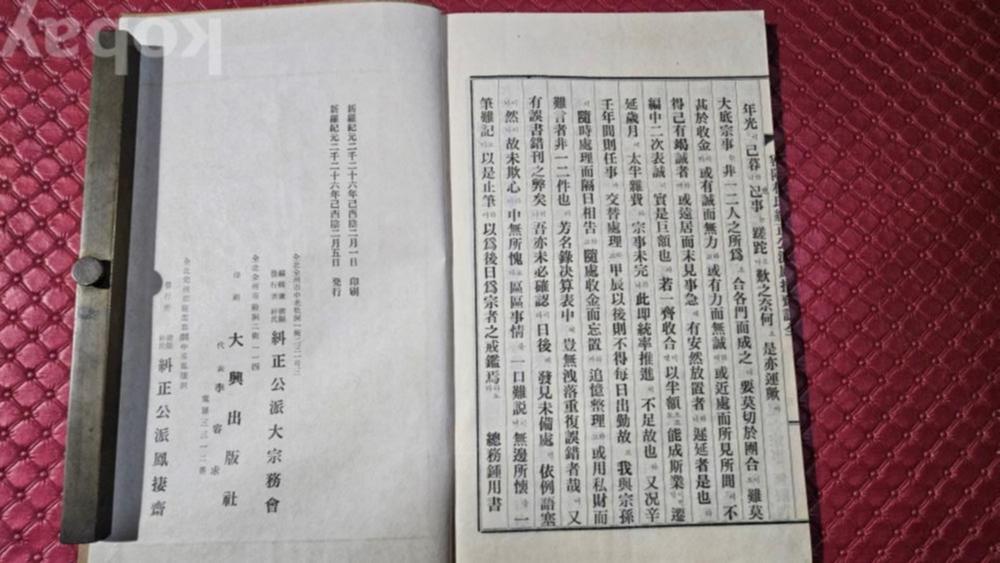 年光已暮 己事蹉跎 歎之奈何 是亦運歟
大底宗事 非一二人之所爲 合各門而成之 要莫切於團合 雖莫
甚於收金 或有誠而無力 或有力而無誠 或近處而所見所聞 不
得已有竭誠者 或遠居而未見事急 有安然放置者 遲延者是也
編中二次表誠 實是巨額也 若一齊收合 以半額能成斯業 遷
延歲月 太半雜費 宗事未完 此卽統率推進 不足故也 又況辛
壬年間則任事 交替處理 甲辰以後則不得每日出勤故 我與宗孫
隨時處理而隔日相告 隨處收金而忘置 追憶整理 或用私財而
難言者非一二件也 芳名錄決算表中 豈無洩落重復誤錯者哉 又
有誤書錯刊之弊矣 吾亦未必確認 日後 發見未備處 依例語塞
然 故未欺心 中無所愧 區區事情 一口難説 無邊所懷 一
筆難記 以是止筆 以爲後日爲宗者之戒鑑焉
總務 鍾用 書
新羅紀元二千二十六年己酉陰二月一日 印刷
新羅紀元二千二十六年己酉陰二月五日 発行
糾正公派大宗務會
大興出版社
代表 李容求
糾正公派鳳捿齋
kobay